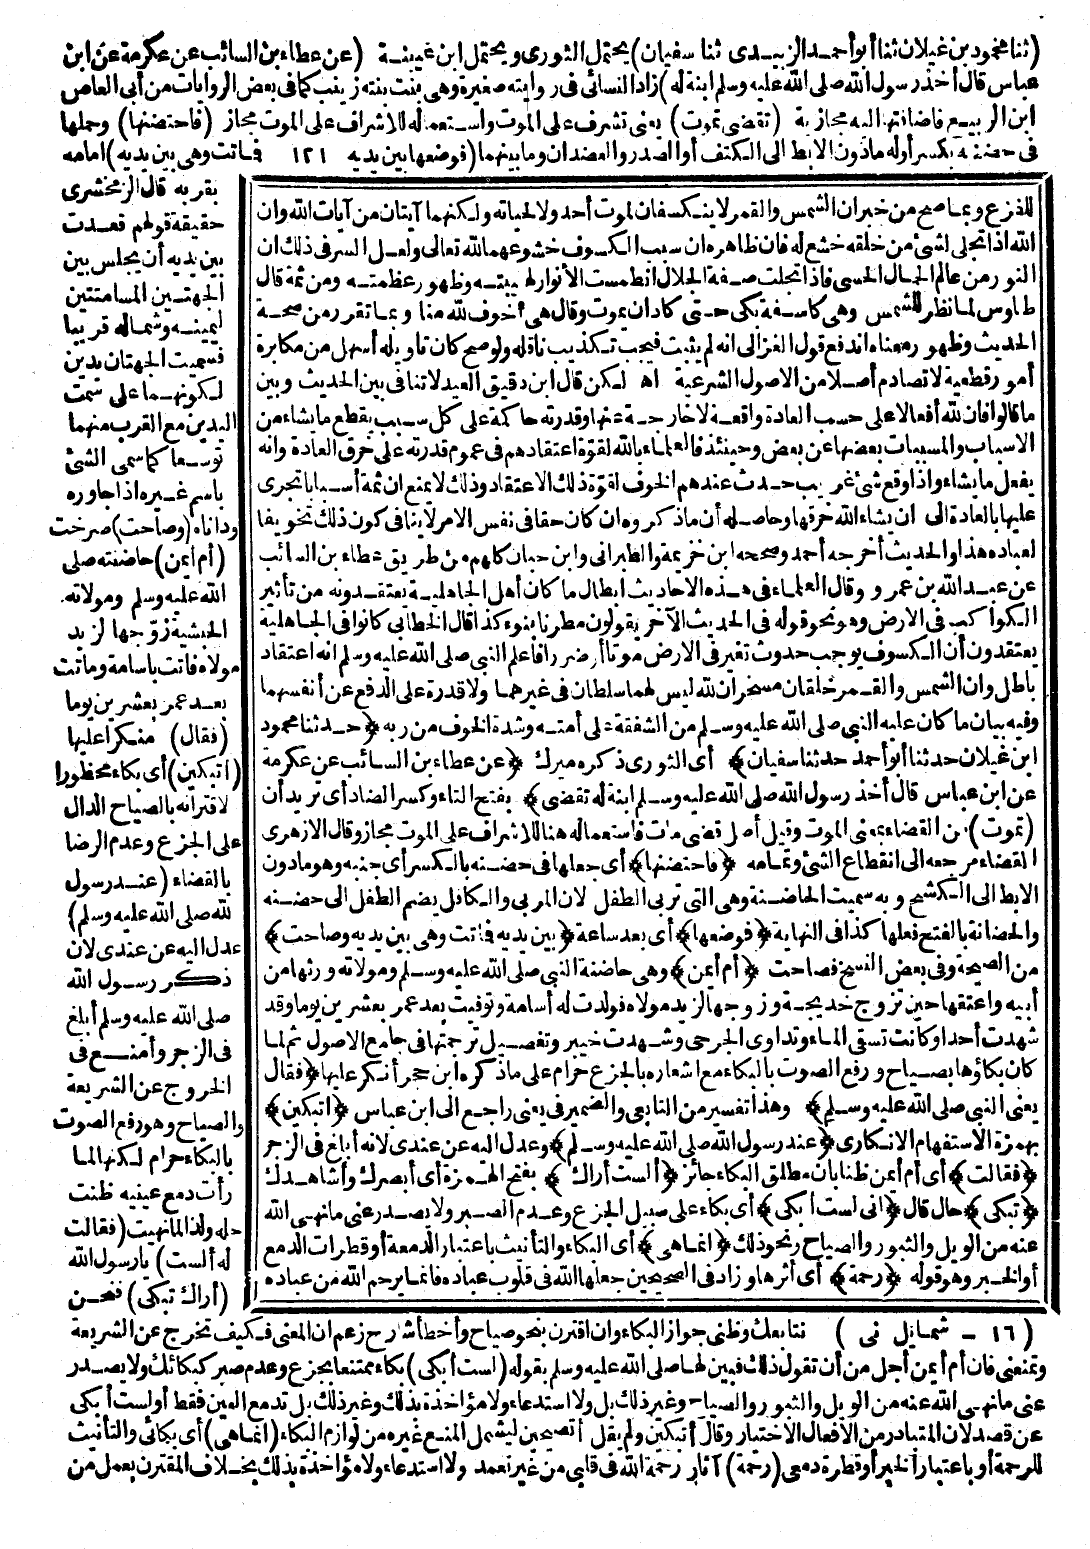 (ثنا محمود بن غيلان ثنا أبو أحمد الزبيدى ثنا سفيان) يحتمل الثورى ويحتمل ابن عيينة (عن عطاء بن السائب عن عكرمة عن ابن
عباس قال أخذ رسول الله صلى الله عليه وسلم ابنة له) زاد النسائى فى روايته صغيره وهى بنت بنته زينب كما فى بعض الروايات من أبى العاص
ابن الربيع فاضافتها اليه مجازية (تقضى تموت) يعنى تشرف على الموت واستعماله للاشراف على الموت مجاز (فاحتضنها) وحملها
فى حضنه بكسر أوله مادون الابط الى الكتف أو الصدر والعضدان وما بينهما (فوضعها بين يديه ١٢١ فماتت وهى بين يديه) امامه
بقربه قال الزمخشرى
حقيقة قولهم قعدت
بين يديه أن يجلس بين
الجهتين المسامتتين
ليمينه وشماله قريبا
فسميت الجهتان يدين
لكونهما على سمت
اليدين مع القرب منهما
توسعا كما سمى الشئ
باسم غيره اذا جاوره
وداناه (وصاحت) صرخت
(أم أيمن) حاضنته صلى
الله عليه وسلم ومولاته
الحبشية زوجها لزيد
مولاه فاتت باسامة وماتت
بعد عمر بعشرين يوما
(فقال) منكرا عليها
(أتبكين) أى بكاء محظورا
لاقترانه بالصياح الدال
على الجزع وعدم الرضا
بالقضاء (عند رسول
لله صلى الله عليه وسلم)
عدل اليه عن عندى لان
ذكر رسول الله
صلى الله عليه وسلم أبلغ
فى الزجر وأمنع فى
الخروج عن الشريعة
والصياح وهو رفع الصوت
بالبكاء حرام لكنها لما
رأت دمع عينيه ظنت
حله ولذا لما نهيت (فقالت
له ألست) يارسول الله
(أراك تبكى) فنحن
للذزع وبما صح من خبران الشمس والقمر لا ينكسفان لموت أحد ولا لحياته ولكنهما آيتان من آيات الله وان
الله اذا تجلى لشئ من خلقه خشع له فان ظاهره ان سبب الكسوف خشوعهما لله تعالى ولعل السر فى ذلك ان
النور من عالم الجمال الحسى فاذا تجلت صفة الجلال انطمست الأنوار لهيبته وظهور عظمته ومن ثمة قال
طاوس لما نظر للشمس وهى كاسفة بكى حتى كاد ان يموت وقال هى أخوف لله منا وبما تقرر من صحة
الحديث وظهور معناه اندفع قول الغزالى انه لم يثبت فيجب تكذيب ناقله ولو صح كان تاويله أسهل من مكابرة
أمور قطعية لا تصادم أصلا من الاصول الشرعية اهـ لكن قال ابن دقيق العيد لا تنافى بين الحديث وبين
ما قالوا فان لله أفعالا على حسب العادة واقعة لا خارجة عنها وقدرته حاكمة على كل سبب يقطع ما يشاء من
الاسباب والمسببات بعضها عن بعض وحينئذ فالعلماء بالله لقوة اعتقادهم فى عموم قدرته على خرق العادة وانه
يفعل ما يشاء واذا وقع شئ غريب حدث عندهم الخوف لقوة ذلك الاعتقاد وذلك لا يمنع ان ثمة أسبابا تجرى
عليها بالعادة الى ان يشاء الله خرقها وحاصله أن ماذكروه ان كان حقا فى نفس الامر لا ينافى كون ذلك تخويفا
لعباده هذا والحديث أخرجه أحمد وصححه ابن خزيمة والطبرانى وابن حبان كلهم من طريق عطاء بن السائب
عن عبد الله بن عمرو وقال العلماء فى هذه الاحاديث ابطال ما كان أهل الجاهلية يعتقدونه من تأثير
الكواكب فى الارض وهو نحو قوله فى الحديث الآخر يقولون مطرنا بنوء كذا قال الخطابى كانوا فى الجاهلية
يعتقدون أن الكسوف يوجب حدوث تغير فى الارض موتا أو ضررا فاعلم النبى صلى الله عليه وسلم انه اعتقاد
باطل وان الشمس والقمر خلقان مسخران لله ليس لهما سلطان فى غيرهما ولا قدرة على الدفع عن أنفسهما
وفيه بيان ما كان عليه النبى صلى الله عليه وسلم من الشفقة على أمته وشدة الخوف من ربه ﴿حدثنا محمود
ابن غيلان حدثنا أبو أحمد حدثنا سفيان﴾ أى الثورى ذكره ميرك ﴿عن عطاء بن السائب عن عكرمة
عن ابن عباس قال أخذ رسول الله صلى الله عليه وسلم ابنة له تقضى﴾ بفتح التاء وكسر الضاد أى تريد أن
(تموت) من القضاء بمعنى الموت وقيل أصل قضى مات فاستعماله هنا للاشراف على الموت مجاز وقال الازهرى
القضاء مرجعه الى انقطاع الشئ وتمامه ﴿فاحتضنها﴾ أى جعلها فى حضنه بالكسر أى جنبه وهو مادون
الابط الى الكشح وبه سميت الحاضنة وهى التى تربى الطفل لان المربى والكافل يضم الطفل الى حضنه
والحضانة بالفتح فعلها كذا فى النهاية ﴿فوضعها﴾ أى بعد ساعة ﴿بين يديه فماتت وهى بين يديه وصاحت﴾
من الصيحة وفى بعض النسخ فصاحت ﴿أم أيمن﴾ وهى حاضنة النبى صلى الله عليه وسلم ومولاته ورثها من
أبيه واعتقها حين تزوج خديجة وزوجها لزيد مولاه فولدت له أسامة وتوفيت بعد عمر بعشرين يوما وقد
شهدت أحدا وكانت تسقى الماء وتداوى الجرحى وشهدت خيبر وتفصيل ترجمتها فى جامع الاصول ثم لما
كان بكاؤها بصياح ورفع الصوت بالبكاء مع اشعاره بالجزع حرام على ماذكره ابن حجر أنكر عليها ﴿فقال
يعنى النبى صلى الله عليه وسلم﴾ وهذا تفسير من التابعى والضمير فى يعنى راجع الى ابن عباس ﴿أتبكين﴾
بهمزة الاستفهام الانكارى ﴿عند رسول الله صلى الله عليه وسلم﴾ وعدل اليه عن عندى لانه أبلغ فى الزجر
﴿فقالت﴾ أى أم أيمن ظنا بان مطلق البكاء جائز ﴿ألست أراك﴾ بفتح الهمزة أى أبصرك وأشاهدك
﴿تبكى﴾ حال قال ﴿انى لست أبكى﴾ أى بكاء على سبيل الجزع وعدم الصبر ولا يصدر عنى ما نهى الله
عنه من الويل والثبور والصياح ونحو ذلك ﴿انما هى﴾ أى البكاء والتأنيث باعتبار الدمعة أو قطرات الدمع
أو الخبر وهو قوله ﴿رحمة﴾ أى أثرها وزاد فى الصحيحين جعلها الله فى قلوب عباده فانما يرحم الله من عباده
(١٦ – شمائل نى) نتابعك وظنى جواز البكاء وان اقترن بنحو صياح وأخطأ شارح زعم ان المعنى فكيف تخرج عن الشريعة
وتمنعنى فان أم أيمن أجل من أن تقول ذلك فبين لها صلى الله عليه وسلم بقوله (لست أبكى) بكاء ممتنعا بجزع وعدم صبر كبكائك ولا يصدر
عنى ما نهى الله عنه من الويل والثبور والصياح وغير ذلك بل ولا استدعاء ولا مؤاخذة بذلك وغير ذلك بل تدمع العين فقط أو لست أبكى
عن قصد لان المتبادر من الأفعال الاختيار وقال أتبكين ولم يقل أتصيحين ليشمل المنع غيره من لوازم البكاء (انما هى) أى بكائى والتأنيث
للرحمة أو باعتبار الخبر أو قطرة دمعى (رحمة) آثار رحمة الله فى قلبى من غير تعمد ولا استدعاء ولا مؤاخذة بذلك بخلاف المقترن بعمل من